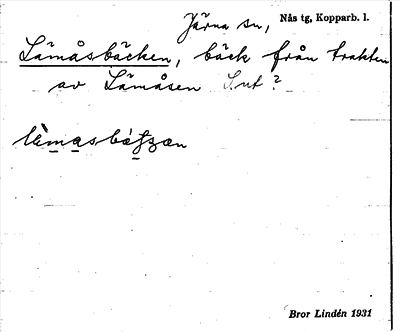 Järna sn, Nås tg, Kopparb. l.
Lämåsbäcken, bäck från trakten
av Lämåsen S. ut?
Bror Lindén 1931